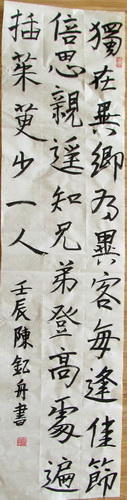 獨在異鄉為異客每逢佳節
倍思親遥知兄弟登高處遍
插茱萸少一人
壬辰陳釲舟書